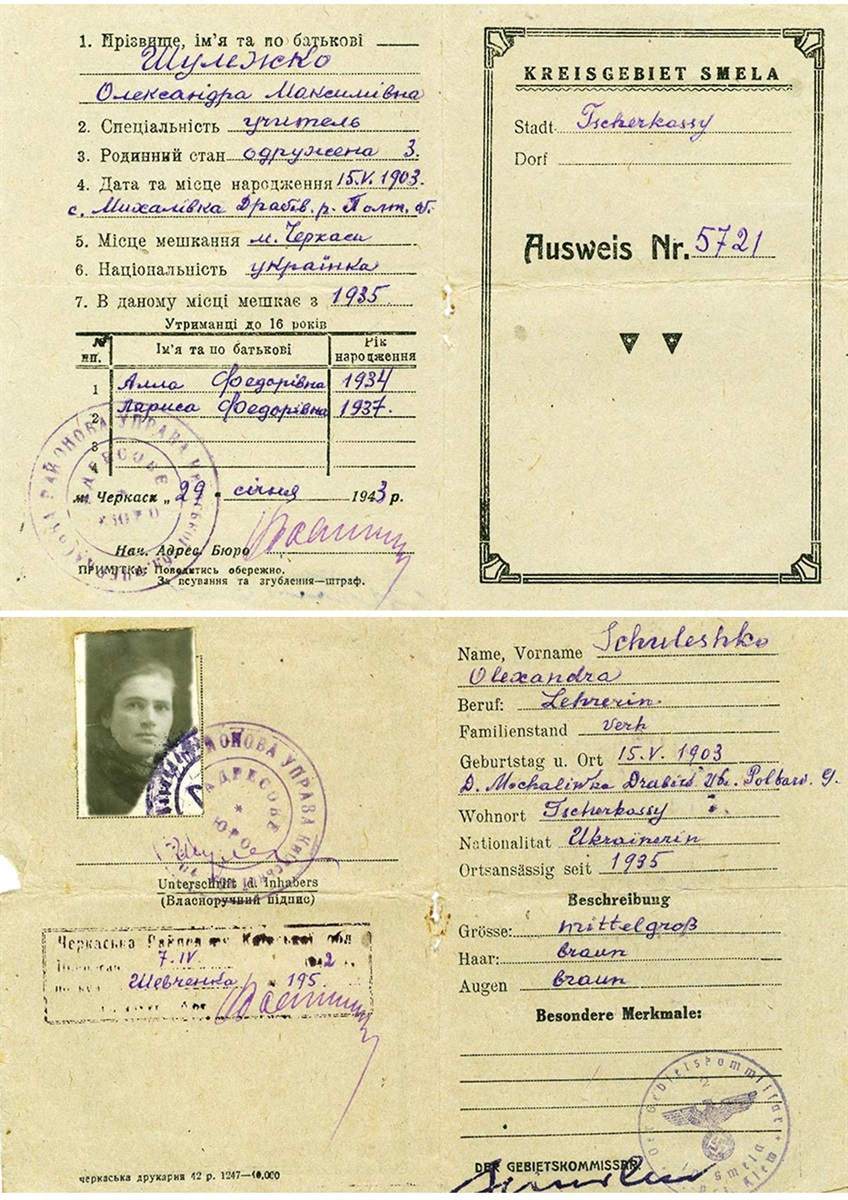 1. Прізвище, ім'я та по батькові
Шулежко
Олександра Максимівна
2. Спеціальність учитель
3. Родинний стан одружена 3.
4. Дата та місце народження 15.V.1903.
с. Михалівка Драбів. р. Полт. об.
5. Місце мешкання м. Черкаси
6. Національність українка
7. В даному місці мешкає з 1935.
Утриманці до 16 років
№ пп. Ім'я та по батькові Рік народження
1 Алла Федорівна 1934
2 Лариса Федорівна 1937.
3
4
м. Черкаси „29" січня 1943 р.
Нач. Адрес. Бюро
ПРИМІТКА: Поводитись обережно.
За псування та згублення—штраф.
РАЙОНОВА УПРАВА
АДРЕСОВЕ
БЮРО
KREISGEBIET SMELA
Stadt Tscherkassy
Dorf
Ausweis Nr. 5721
РАЙОНОВА УПРАВА
АДРЕСОВЕ
БЮРО
Unterschrift d. Inhabers
(Власноручний підпис)
Черкаська Київської обл
7.IV. 2
Шевченка 195
черкаська друкарня 42 р. 1247—10.000
Name, Vorname Schuleshko
Olexandra
Beruf: Lehrerin
Familienstand verh
Geburtstag u. Ort 15.V. 1903
D. Mochaliwka
Wohnort Tscherkassy
Nationalitat Ukrainerin
Ortsansässig seit 1935
Beschreibung
Grösse: mittelgroß
Haar: braun
Augen braun
Besondere Merkmale:
DER GEBIETSKOMMISSAR.
Der Gebietskommissar
in Smela